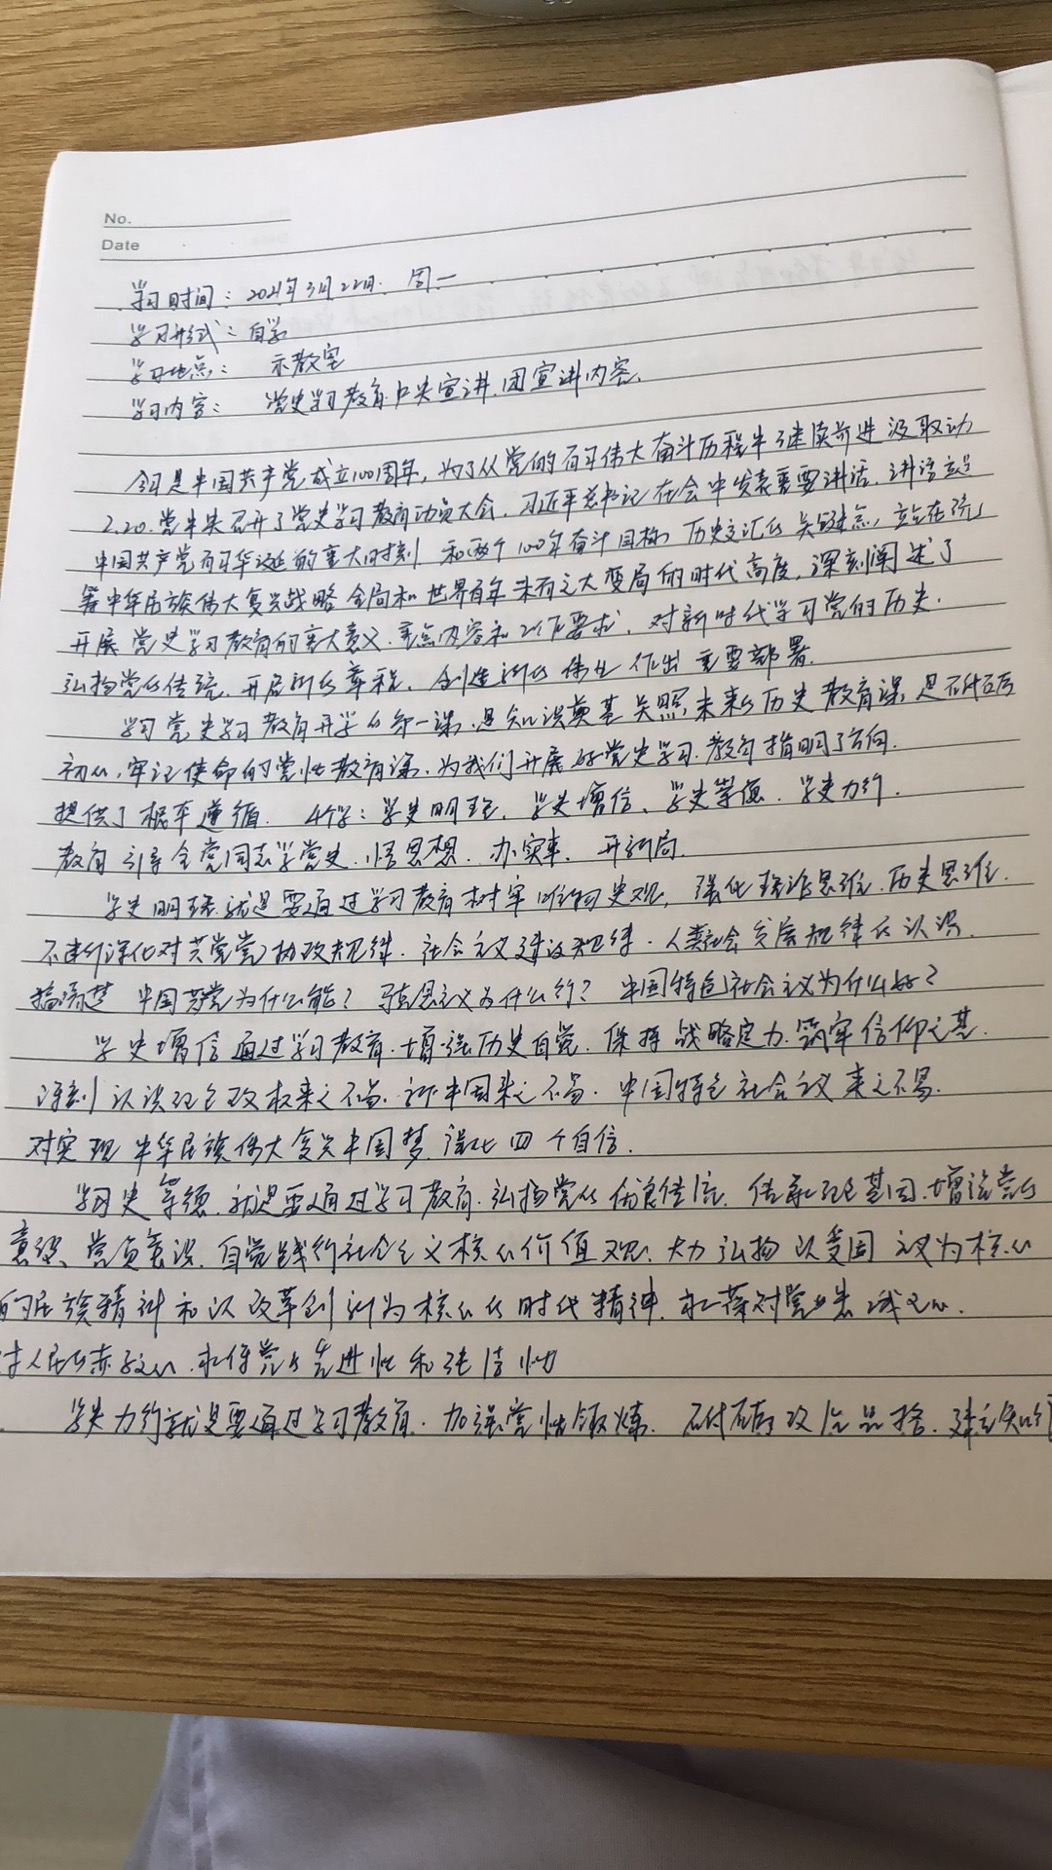 No.
Date
学习时间：2021年3月22日. 周一
学习形式：自学
学习地点： 示教室
学习内容： 党史学习教育中央宣讲团宣讲内容.
今年是中国共产党成立100周年，为了从党的百年伟大奋斗历程中继续前进汲取动
2.20.党中央召开了党史学习教育动员大会，习近平总书记在会中发表重要讲话，讲话立足
中国共产党百年华诞的重大时刻 和两个100年奋斗目标 历史交汇的关键点，立足在统
筹中华民族伟大复兴战略全局和世界百年未有之大变局的时代高度，深刻阐述了
开展党史学习教育的重大意义、重点内容和工作要求，对新时代学习党的历史.
弘扬党的传统，开启新的章程，创造新的伟业 作出重要部署.
学习党史学习教育开学的第一课，是知识奠基关照未来的历史教育课，是不忘
初心，牢记使命的党性教育课，为我们开展好党史学习教育指明了方向.
提供了根本遵循. 4个学：学史明理、学史增信、学史崇德、学史力行.
教育引导全党同志学党史、悟思想、办实事、开新局.
学史明理就是要通过学习教育树牢唯物史观，强化理论思维、历史思维.
不断深化对共产党执政规律、社会主义建设规律、人类社会发展规律的认识.
搞清楚 中国共产党为什么能？马克思主义为什么行？中国特色社会主义为什么好？
学史增信通过学习教育，增强历史自觉，保持战略定力，筑牢信仰之基.
深刻认识红色政权来之不易、新中国来之不易、中国特色社会主义来之不易.
对实现中华民族伟大复兴中国梦，强化四个自信.
学习史崇德，就是要通过学习教育，弘扬党的优良传统，传承红色基因，增强党的
意识、党员意识，自觉践行社会主义核心价值观，大力弘扬以爱国主义为核心
的民族精神和以改革创新为核心的时代精神，永葆对党忠诚之心.
对人民的赤子心，永保党的先进性和纯洁性
学史力行就是要通过学习教育，加强党性锻炼，政治品格，建立知行